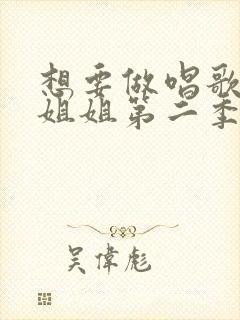 想要做唱歌
姐姐第二季
吴偉彪